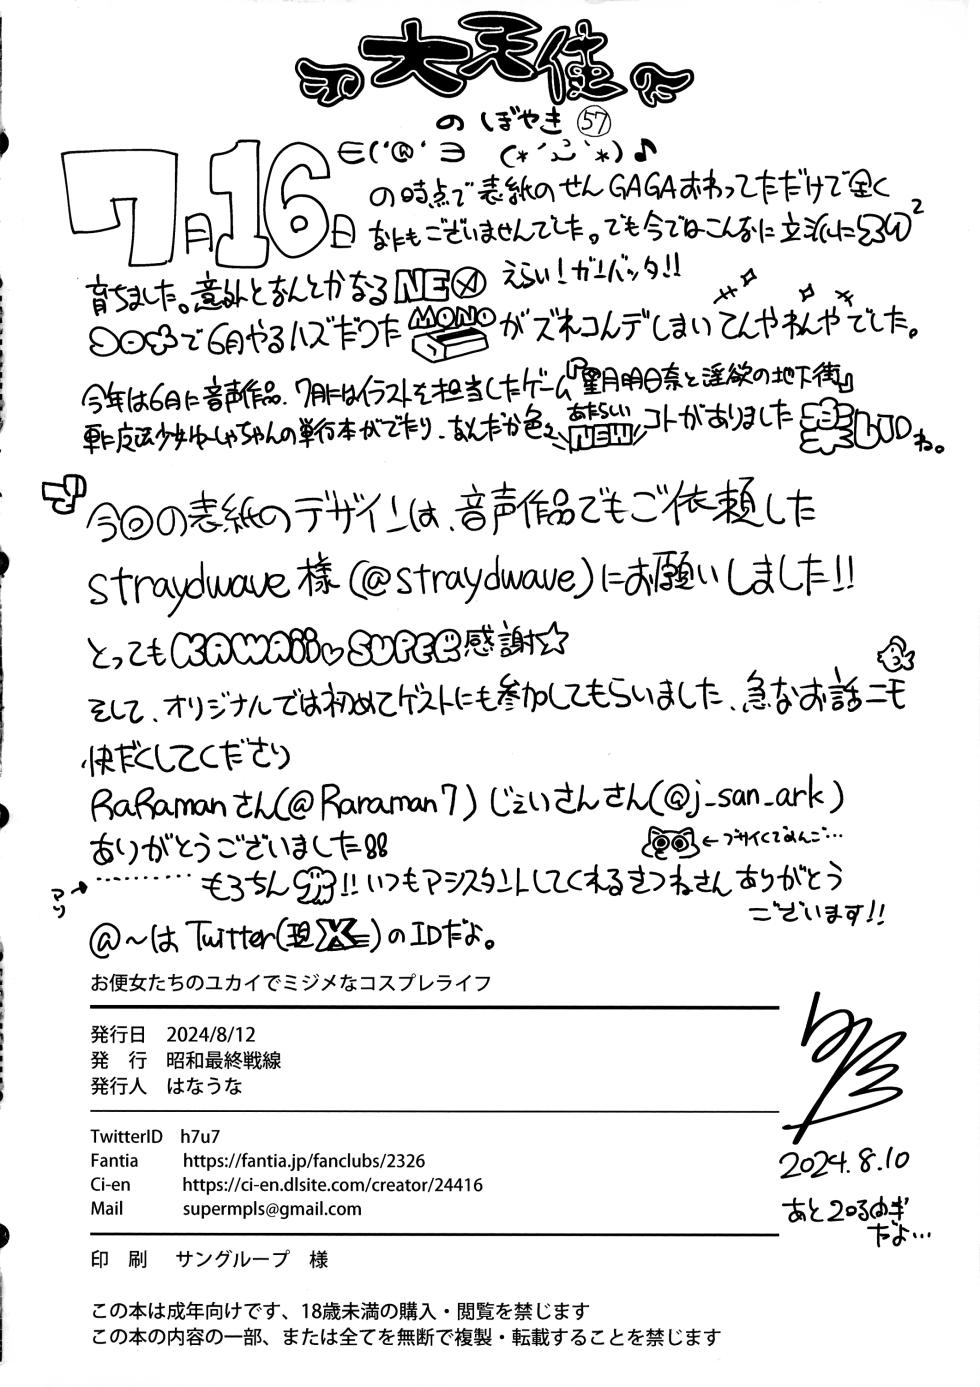 大天使
のぼやき 57
7月16日 の時点で表紙のせんGAGAおわってただけで全く
なにもございませんでした。でも今ではこんなに立派に
育ちました。意外となんとかなるNEえらい!ガンバッタ!!
で6月やるハズだったMONOがズれコんデしまいてんやわんやでした。
今年は6月に音声作品、7月にはイラストを担当したゲーム『星月明日奈と淫欲の地下街』
更に魔法少女ゆーしゃちゃんの単行本がでたり、なんだか色々あたらしいNEWコトがありました ね。
今回の表紙のデザインは、音声作品でもご依頼した
straydwave様(@straydwave)にお願いしました!!
とってもKAWAii♡SUPER感謝☆
そして、オリジナルでは初めてゲストにも参加してもらいました、急なお話ニモ
快だくしてくださり
RaRamanさん(@Raraman7)じぇいさんさん(@j_san_ark)
ありがとうございました!!
←ブサイくてめんご…
もろちん!!いつもアシスタントしてくれるきつねさんありがとう
ございます!!
@〜はTwitter(現X)のIDだよ。
お便女たちのユカイでミジメなコスプレライフ
発行日 2024/8/12
発 行 昭和最終戦線
発行人 はなうな
TwitterID h7u7
Fantia https://fantia.jp/fanclubs/2326
Ci-en https://ci-en.dlsite.com/creator/24416
Mail supermpls@gmail.com
2024.8.10
だよ…
印 刷 サングループ 様
この本は成年向けです、18歳未満の購入・閲覧を禁じます
この本の内容の一部、または全てを無断で複製・転載することを禁じます